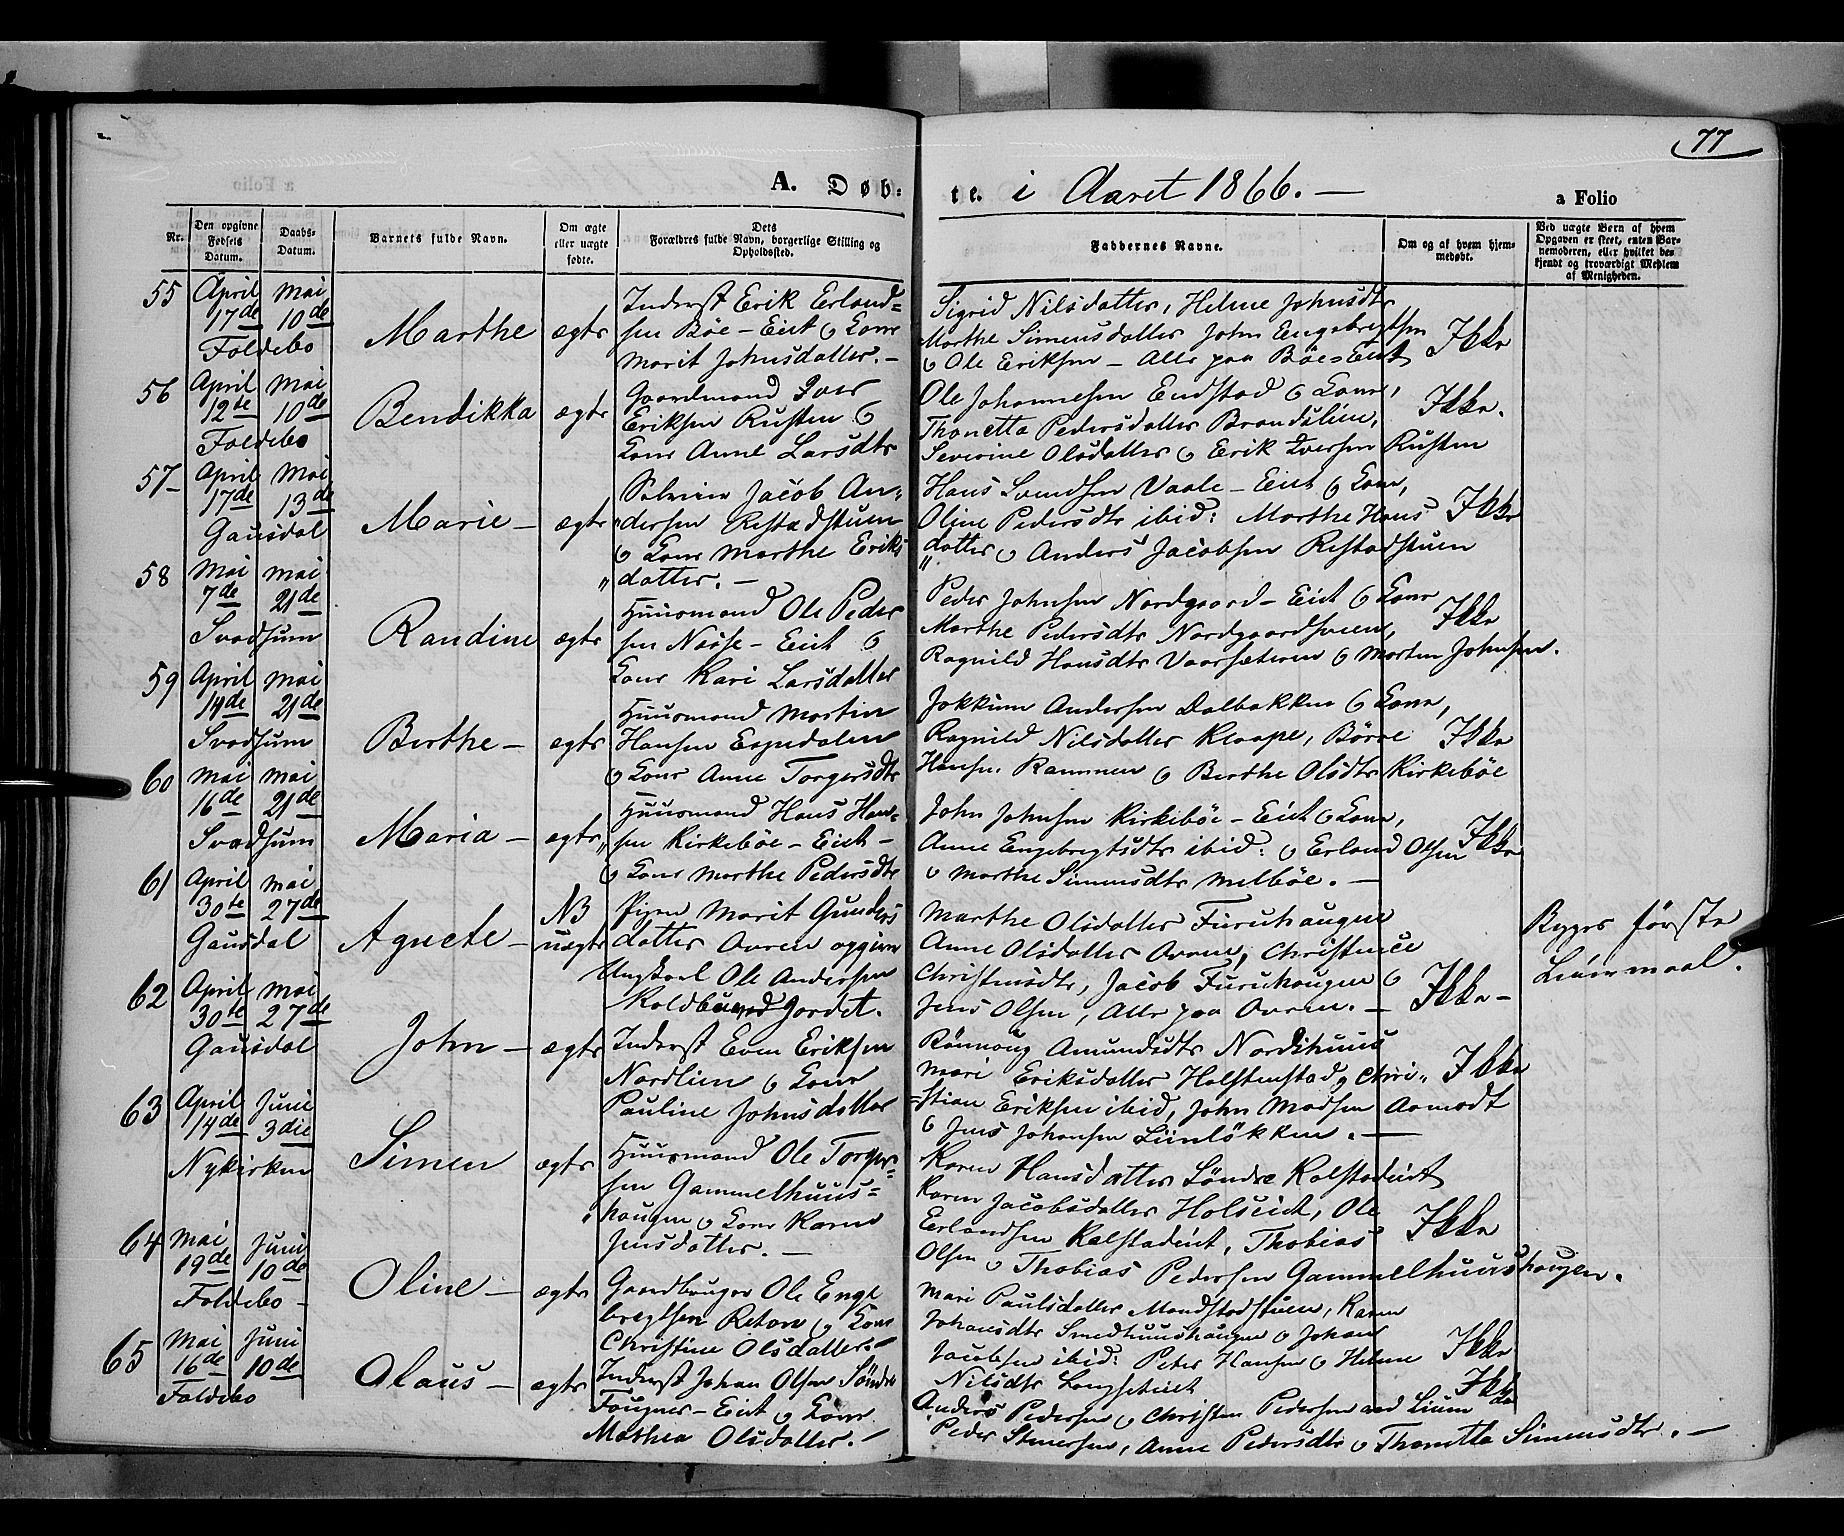 77
A. Døb-te. i Aaret 1866. —
a Folio
Nr.
Den opgivne Fødsels Datum.
Daabs-Datum.
Barnets fulde Navn.
Om ægte eller uægte fødte.
Dets Forældres fulde Navn, borgerlige Stilling og Opholdssted.
Faddernes Navne.
Om og af hvem hjemmedøbt.
Ved uægte Børn af hvem Opgaven er skeet, enten Barnemoderen, eller hvilket bekjendt og troværdigt Medlem af Menigheden.
55 April 17de Mai 10de Foldebo
Marthe
ægte
Inderst Erik Erland=
sen Böe-Eiet & Kone
Marit Johnsdatter. —
Sigrid Nilsdatter, Helene Johnsdtr
Marthe Simensdatter John Engebregtsen
& Ole Eriksen — Alle paa Böe-Eiet
Ikke
56 April 12te Mai 10de Foldebo
Bendikka
ægte
Gaardmand Iver
Eriksen Rusten &
Kone Anne Larsdtr
Ole Johannesen Endstad & Kone,
Thonetta Pedersdatter Brandslien,
Severine Olsdatter & Erik Iversen Rusten
Ikke.
57 April 17de Mai 13de Gausdal
Marie —
ægte
Selveier Jacob An=
dersen Restadstuen
& Kone Marthe Eriks
datter. —
Hans Svendsen Vaale-Eiet & Kone,
Oline Pedersdtr ibid: Marthe Hans
datter & Anders Jacobsen Restadstuen
Ikke
58 Mai 7de Mai 21de Svadsum
Randine
ægte
Huusmand Ole Peder
sen Nösse-Eiet &
Kone Kari Larsdatter
Peder Johnsen Nordgaard-Eiet & Kone
Marthe Pedersdtr Nordgaardsveen,
Ragnild Hansdtr Vaarseteren & Morten Johnsen.
Ikke
59 April 14de Mai 21de Svadsum
Berthe —
ægte
Huusmand Martin
Hansen Espedalen
& Kone Anne Torgersdtr
Jokkum Andersen Dalbakken & Kone,
Ragnild Nilsdatter Klaape, Börre
Hansen Rammen & Berthe Olsdtr Kirkeböe
Ikke
60 Mai 16de Mai 21de Svadsum
Maria —
ægte
Huusmand Hans Han=
sen Kirkeböe-Eiet —
& Kone Marthe Pedersdtr
John Johnsen Kirkeböe-Eiet & Kone,
Anne Engebregtsdtr ibid: & Erland Olsen
& Marthe Simensdtr Melböe. —
Ikke
61 April 30te Mai 27de Gausdal
Agnete —
NB uægte
Pigen Marit Gunders
datter Avren opgiven
Ungkarl Ole Andersen
Skoldbundjordet.
Marthe Olsdatter Furuhaugen
Anne Olsdatter Avren, Christence
Christensdtr, Jacob Furuhaugen &
Jens Olsen, Alle paa Avren. —
Ikke —
Begges förste
Leiermaal.
62 April 30te Mai 27de Gausdal
John —
ægte
Inderst Even Eriksen
Nordlien & Kone
Pauline Johnsdatter
Rönnoug Amundsdtr Nordshuus
Mari Eriksdatter Holstenstad, Chri=
=stian Eriksen ibid, John Madsen Aamodt
& Jens Johansen Liinlökken. —
Ikke
63 April 14de Juni 3die Nykirken
Simen
ægte
Huusmand Ole Torger=
sen Gammelhuus=
haugen & Kone Karen
Jensdatter. —
Karen Hansdatter Söndre Kalstadeiet
Karen Jacobsdatter Holseiet, Ole
Erlandsen Kalstadeiet, Thobias
Olsen & Thobias Pedersen Gammelhuushaugen.
Ikke
64 Mai 19de Juni 10de Foldebo —
Oline —
ægte
Gaardbruger Ole Enge
bregtsen Reton & Kone
Christine Olsdatter. —
Mari Paulsdatter Mandstadstuen, Karen
Johansdtr Smedhuushaugen & Johan
Jacobsen ibid: Peter Hansen & Helene
Nilsdtr Longseteiet
Ikke
65 Mai 16de Juni 10de Foldebo
Olaus —
ægte
Inderst Johan Olsen Söndre
Fougner-Eiet & Kone
Mathea Olsdatter. —
Anders Pedersen & Christen Pedersen
Peder Stenersen, Anne Pedersdtr & Thonetta Simensdtr. —
Ikke